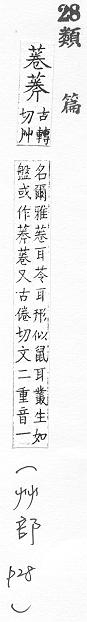 28類篇
菤莽
古轉
切艸
名爾雅菤耳苓耳形似鼠耳叢生如
盤或作莽菤又古倦切文二重音一
(艸部
p28)